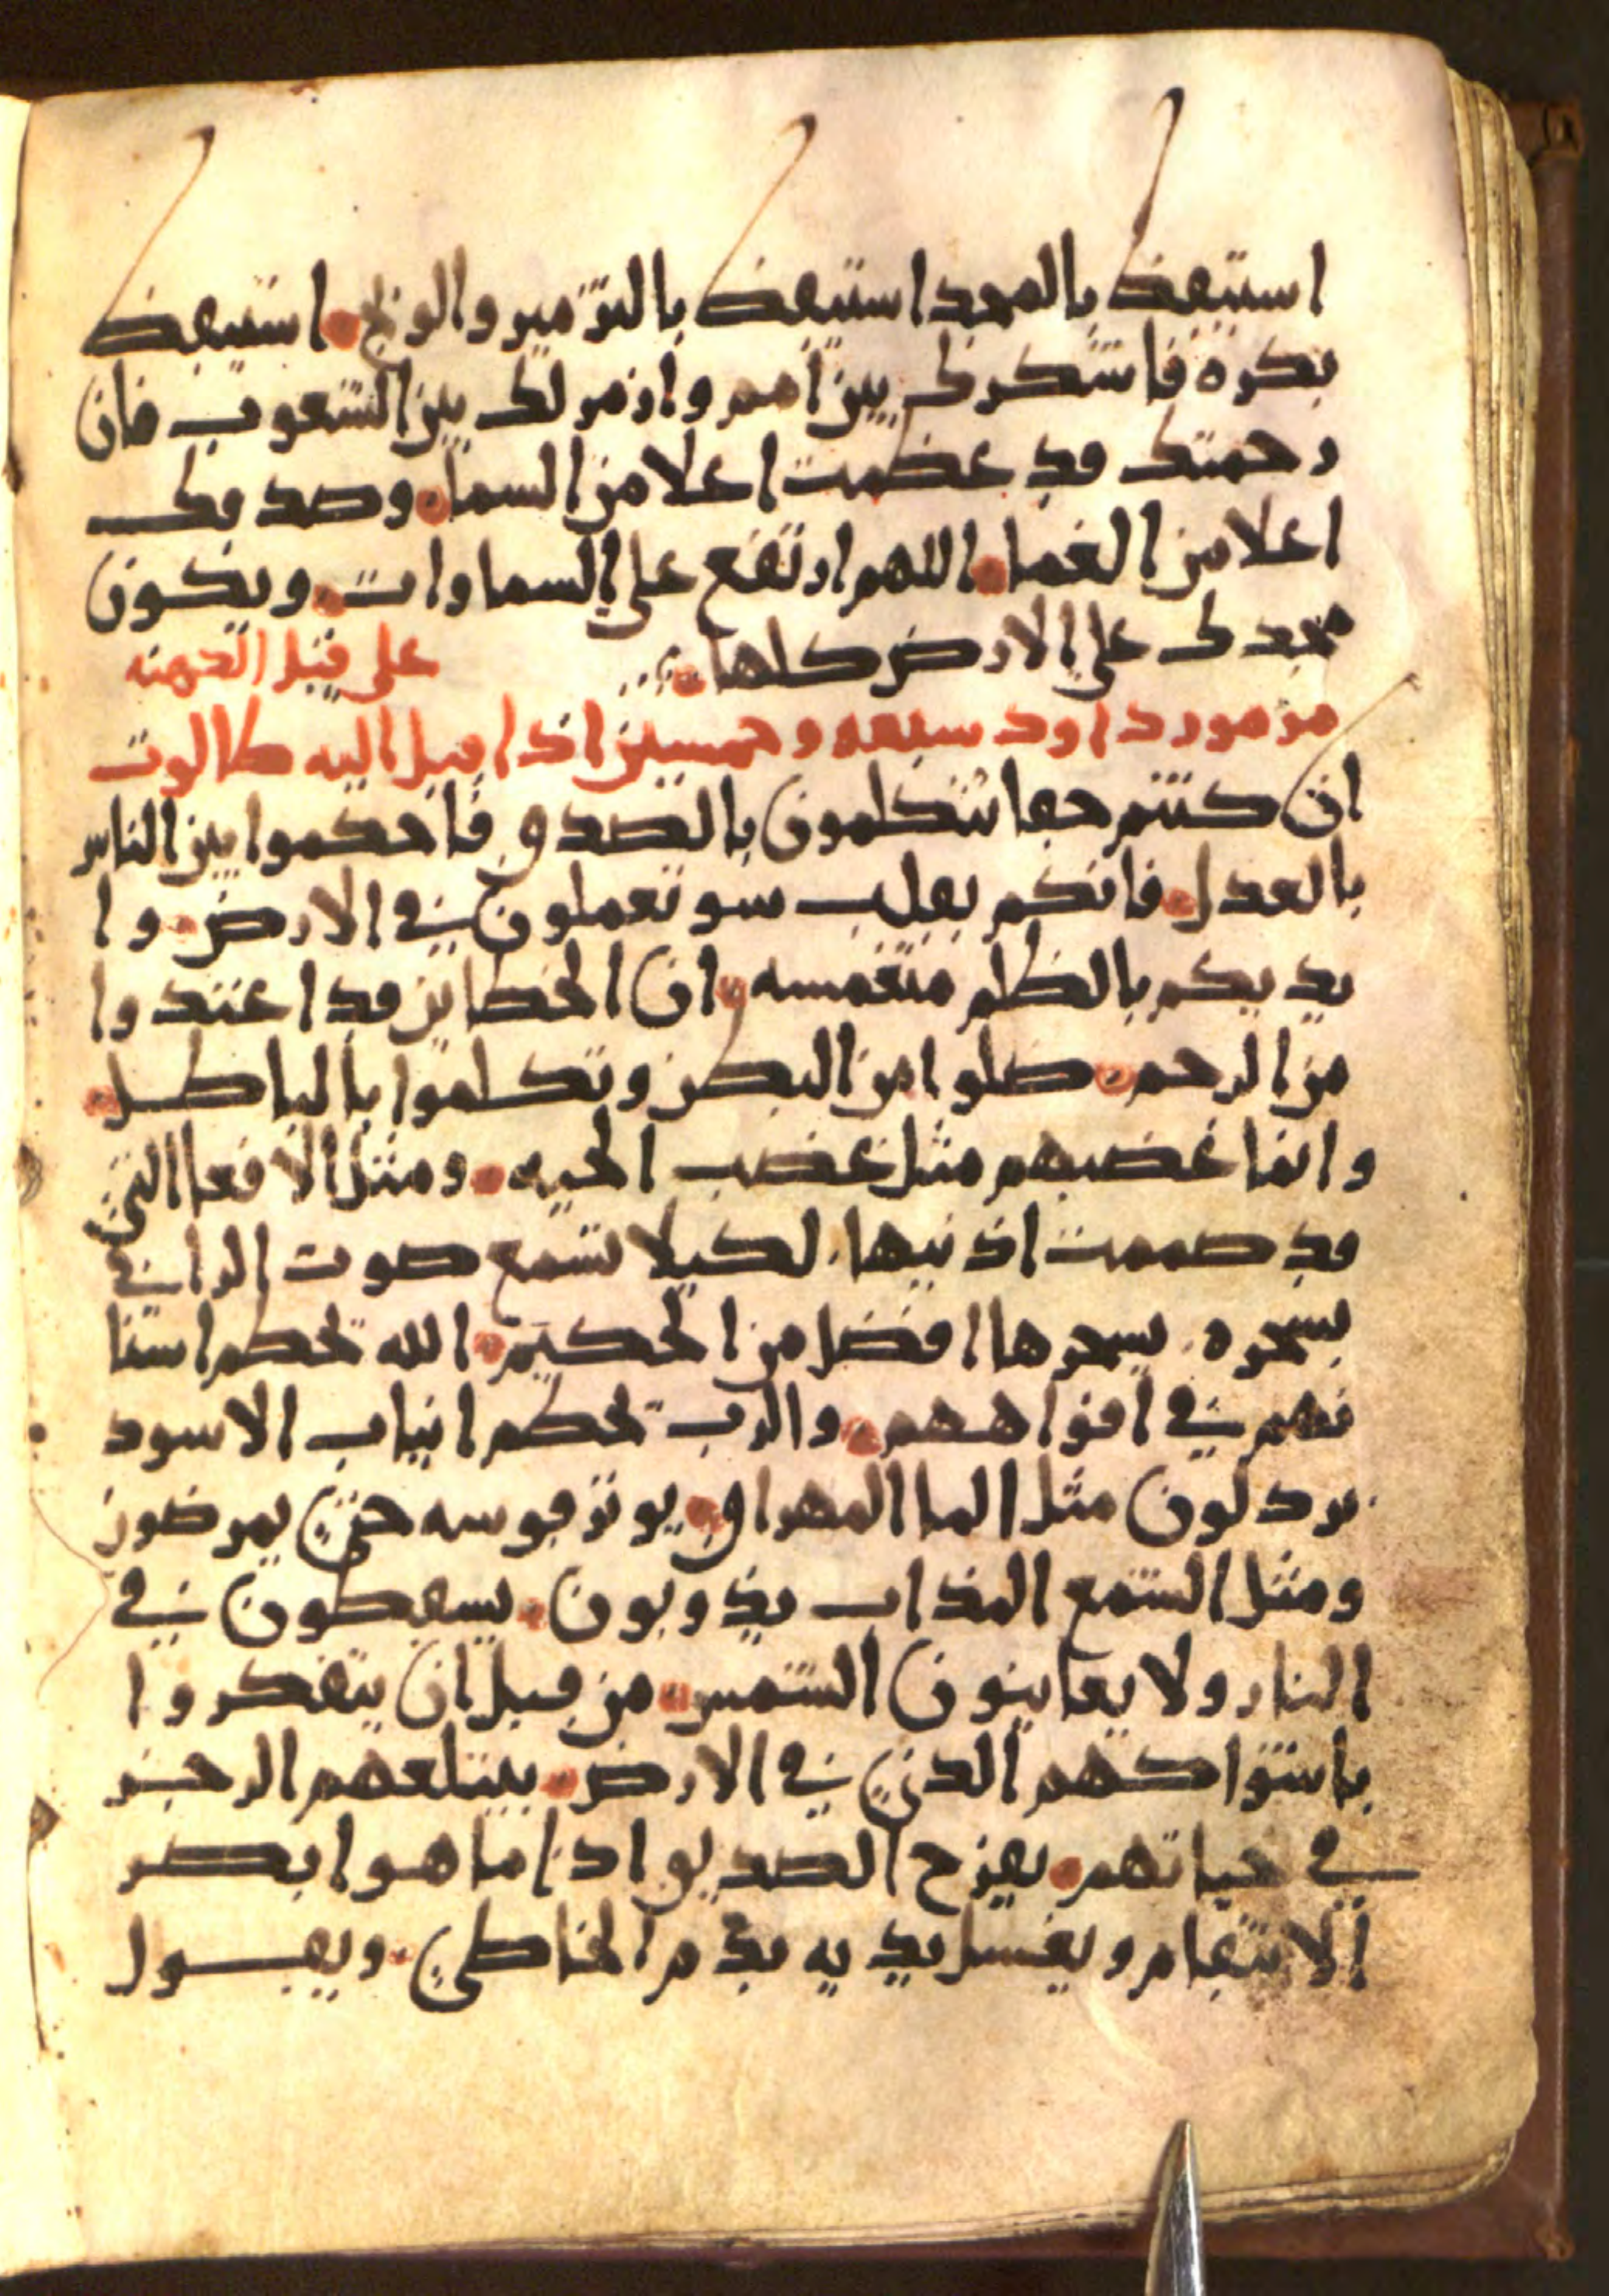 استيقظ يا لمجد استيقظ يا لتزمير والونج استيقظ
بكره فاشكرك بين امم وازمر لك بين الشعوب فان
رحمتك قد عظمت اعلا من السما وصدقك
اعلا من الغما اللهم ارتفع على السماوات ويكون
مجدك على الارض كلها على قتل الكهنه
مزمور داود سبعه وخمسين اذا قبل اليه طالوت
ان كنتم حقا تتكلمون بالصدق فاحكموا بين الناس
بالعدل فانكم بقلب سو تعملون في الارض وا
يديكم بالظلم منغمسه ان الخطايين قد اعتدوا
من الرحم ضلوا من البطن وتكلموا بالباطل
وانما غضبهم مثل غضب الحيه ومثل الافعا التي
قد صممت اذنيها لكيلا تسمع صوت الراقي
بسحره يسحرها افضل من الحكيم الله يحطم اسنا
نهم في افواههم والرب يحطم انياب الاسود
يردلون مثل الما المهراق يوتر قوسه حتى يمرضون
ومثل الشمع المذاب يذوبون يسقطون في
النار ولا يعاينون الشمس من قبل ان يتفكروا
باشواكهم الذي في الارض يبتلعهم الرجز
في حياتهم يفرح الصديق اذا ما هو ابصر
الانتقام ويغسل يديه بدم الخاطي ويقول